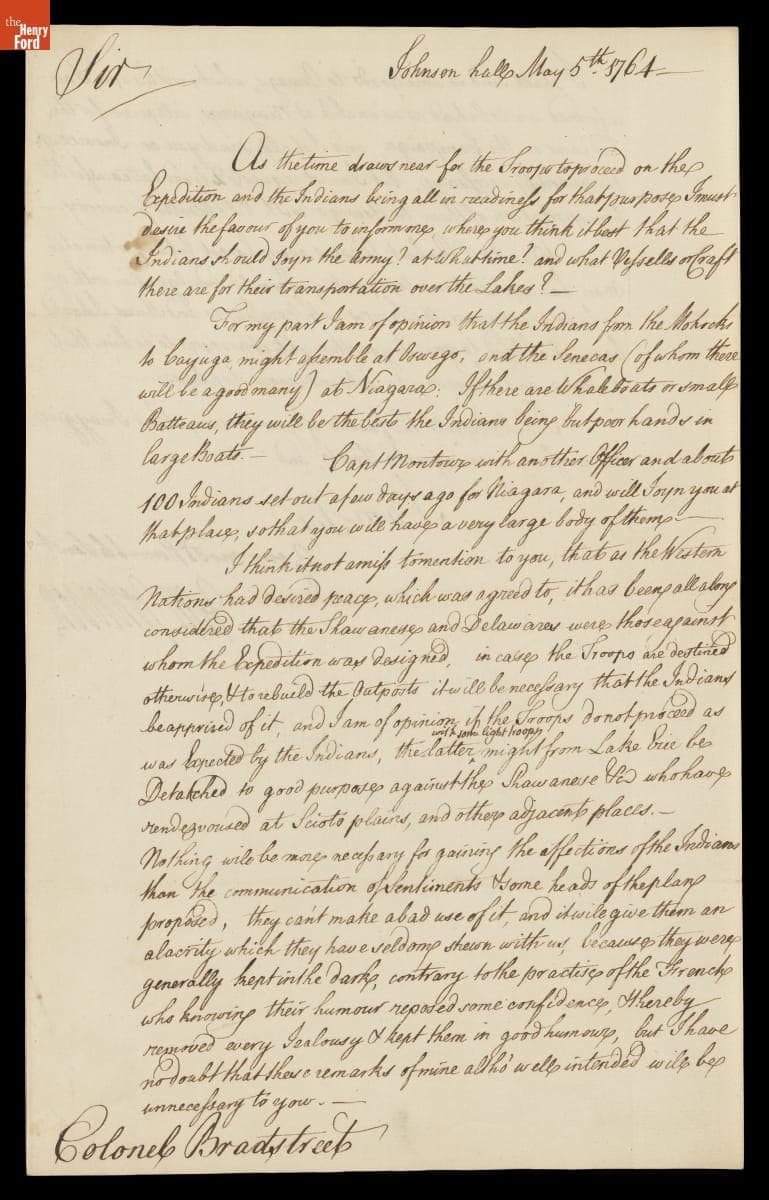 the
Henry
Ford
Sir
Johnson hall May 5th. 1764
As the time draws near for the Troops to proceed on the
Expedition and the Indians being all in readiness for that purpose I must
desire the favour of you to inform me, where you think it best that the
Indians should Joyn the Army? at What time? and what Vessells or Craft
there are for their transportation over the Lakes? —
For my part I am of opinion that the Indians from the Mohocks
to Cayuga, might assemble at Oswego, and the Senecas (of whom there
will be a good many) at Niagara: If there are Whale boats or small
Batteaus, they will be the best the Indians being but poor hands in
large Boats. — Capt Montour with another Officer and about
100 Indians set out a few days ago for Niagara, and will Joyn you at
that place, so that you will have a very large body of them —
I think it not amiss to mention to you, that as the Western
Nations had desired peace, which was agreed to, it has been all along
considered that the Shawanese and Delawares were those against
whom the Expedition was designed, in case the Troops are destined
otherwise, & to rebuild the Outposts it will be necessary that the Indians
be apprised of it, and I am of opinion if the Troops do not proceed as
with some light troops
was Expected by the Indians, the latter might from Lake Erie be
Detatched to good purpose against the Shawanese &ca who have
rendezvoused at Scioto plains, and other adjacent places. —
Nothing will be more necessary for gaining the affections of the Indians
than the communication of Sentiments & some heads of the plan
proposed, they can't make a bad use of it, and it will give them an
alacrity which they have seldom shewn with us, because they were
generally kept in the dark, contrary to the practise of the French
who knowing their humour reposed some confidence, & thereby
removed every Jealousy & kept them in good humour, but I have
no doubt that these remarks of mine altho' well intended will be
unnecessary to you. —
Colonel Bradstreet